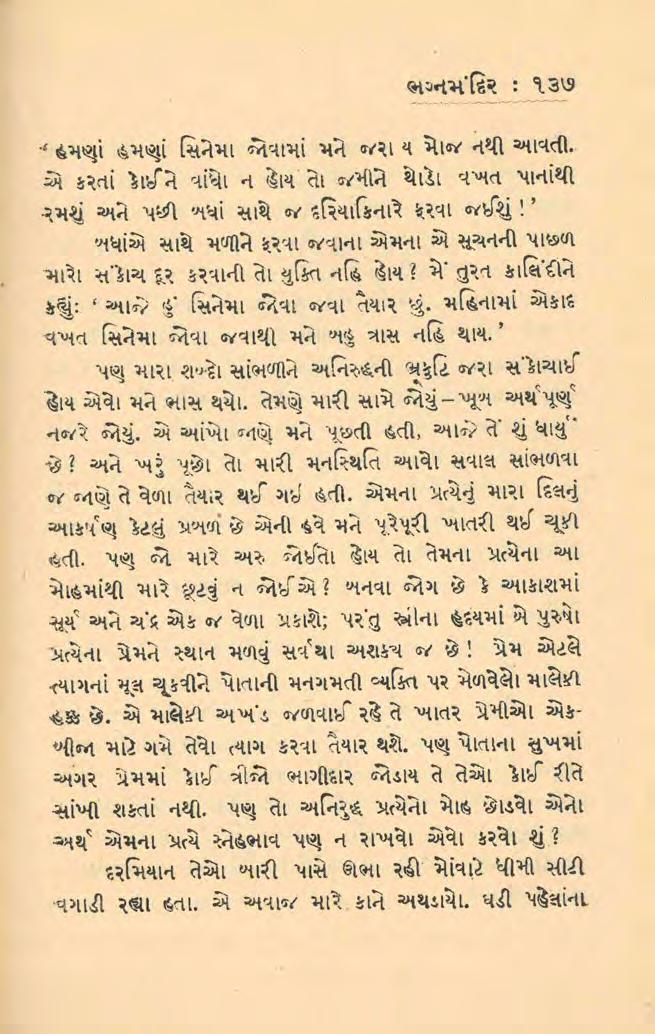 ભગ્નમંદિર : ૧૩૭
‘ હમણાં હમણાં સિનેમા જોવામાં મને જરા ય મોજ નથી આવતી.
એ કરતાં કોઈને વાંધો ન હોય તો જમીને થોડો વખત પાનાંથી
રમશું અને પછી બધાં સાથે જ દરિયાકિનારે ફરવા જઈશું ! ’
બધાંએ સાથે મળીને ફરવા જવાના એમના એ સૂચનની પાછળ
મારો સંકોચ દૂર કરવાની તો યુક્તિ નહિ હોય ? મેં તુરત કાલિંદીને
કહ્યુંઃ ‘ આજે હું સિનેમા જોવા જવા તૈયાર છું. મહિનામાં એકાદ
વખત સિનેમા જોવા જવાથી મને બહુ ત્રાસ નહિ થાય. ’
પણ મારા શબ્દો સાંભળીને અનિરુદ્ધની ભ્રકુટિ જરા સંકોચાઈ
હોય એવો મને ભાસ થયો. તેમણે મારી સામે જોયું – ખૂબ અર્થપૂર્ણ
નજરે જોયું. એ આંખો જાણે મને પૂછતી હતી, આજે તેં શું ધાર્યું
છે ? અને ખરું પૂછો તો મારી મનસ્થિતિ આવો સવાલ સાંભળવા
જ જાણે તે વેળા તૈયાર થઈ ગઈ હતી. એમના પ્રત્યેનું મારા દિલનું
આકર્ષણ કેટલું પ્રબળ છે એની હવે મને પૂરેપૂરી ખાતરી થઈ ચૂકી
હતી. પણ જો મારે અરુ જોઈતો હોય તો તેમના પ્રત્યેના આ
મોહમાંથી મારે છૂટવું ન જોઈએ ? બનવા જોગ છે કે આકાશમાં
સૂર્ય અને ચંદ્ર એક જ વેળા પ્રકાશે; પરંતુ સ્ત્રીના હૃદયમાં બે પુરુષો
પ્રત્યેના પ્રેમને સ્થાન મળવું સર્વથા અશક્ય જ છે ! પ્રેમ એટલે
ત્યાગનાં મૂલ ચૂકવીને પોતાની મનગમતી વ્યક્તિ પર મેળવેલો માલેકી
હક્ક છે. એ માલેકી અખંડ જળવાઈ રહે તે ખાતર પ્રેમીઓ એક-
બીજા માટે ગમે તેવો ત્યાગ કરવા તૈયાર થશે. પણ પોતાના સુખમાં
અગર પ્રેમમાં કોઈ ત્રીજો ભાગીદાર જોડાય તે તેઓ કોઈ રીતે
સાંખી શકતાં નથી. પણ તો અનિરુદ્ધ પ્રત્યેનો મોહ છોડવો એનો
અર્થ એમના પ્રત્યે સ્નેહભાવ પણ ન રાખવો એવો કરવો શું ?
દરમિયાન તેઓ બારી પાસે ઊભા રહી મોંવાટે ધીમી સીટી
વગાડી રહ્યા હતા. એ અવાજ મારે કાને અથડાયો. ઘડી પહેલાંના